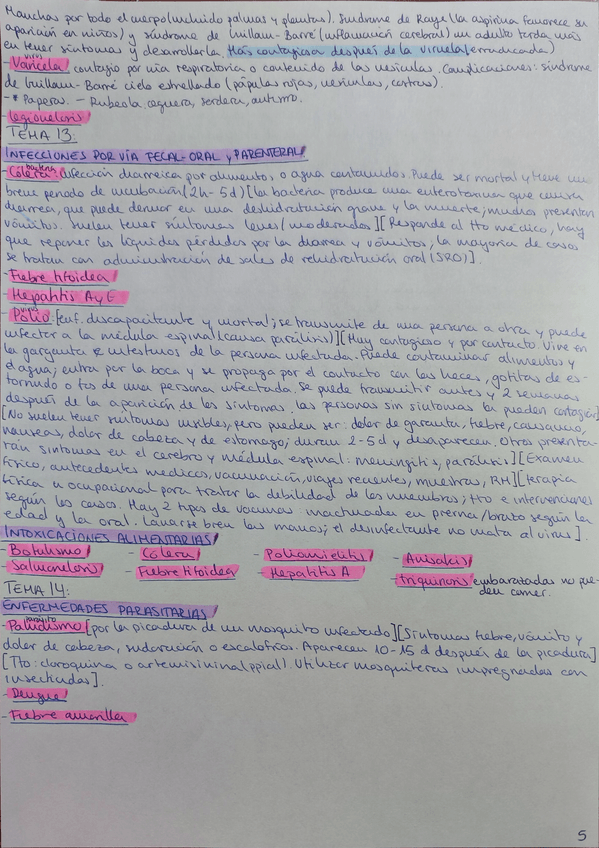 Manchas por todo el cuerpo (incluido palmas y plantas). Síndrome de Raye (la aspirina favorece su
aparición en niños) y síndrome de Guillam-Barré (inflamación cerebral) un adulto tarda más
en tener síntomas y desarrollarla. Más contagiosa después de la viruela (erradicada)
- Varicela: virus contagio por vía respiratoria o contenido de las vesículas. Complicaciones: síndrome
de Guillam-Barré cielo estrellado (pápulas rojas, vesículas, costras).
- * Paperas. - Rubeola ceguera, sordera, autismo.
- Legionelosis
TEMA 13:
INFECCIONES POR VÍA FECAL-ORAL Y PARENTERAL
- Cólera: bacteria infección diarreica por alimentos o agua contaminados. Puede ser mortal y tiene un
breve periodo de incubación (2h-5d) [la bacteria produce una enterotoxina que causa
diarrea, que puede derivar en una deshidratación grave y la muerte; muchos presentan
vómitos. Suelen tener síntomas leves/moderados] [Responde al tto médico, hay
que reponer los líquidos perdidos por la diarrea y vómitos, la mayoría de casos
se tratan con administración de sales de rehidratación oral (SRO)].
- Fiebre tifoidea
- Hepatitis A y E
- Polio: virus [enf. discapacitante y mortal; se transmite de una persona a otra y puede
infectar a la médula espinal (causa parálisis)] [Muy contagioso y por contacto. Vive en
la garganta e intestinos de la persona infectada. Puede contaminar alimentos y
el agua; entra por la boca y se propaga por el contacto con las heces, gotitas de es-
tornudo o tos de una persona infectada. Se puede transmitir antes y 2 semanas
después de la aparición de los síntomas. las personas sin síntomas tb pueden contagiar]
[No suelen tener síntomas visibles, pero pueden ser: dolor de garganta, fiebre, cansancio,
nauseas, dolor de cabeza y de estomago; duran 2-5d y desaparecen. Otros presenta-
rán síntomas en el cerebro y médula espinal: meningitis, parálisis] [Examen
físico, antecedentes médicos, vacunación, viajes recientes, muestras, RM] [terapia
física u ocupacional para tratar la debilidad de los miembros; tto e intervenciones
según los casos. Hay 2 tipos de vacunas: inactivadas en pierna/brazo según la
edad y la oral. Lavarse bien las manos; el desinfectante no mata al virus].
INTOXICACIONES ALIMENTARIAS
- Botulismo - Cólera - Poliomielitis - Anisakis
- Salmonelosis - Fiebre tifoidea - Hepatitis A - triquinosis embarazadas no pue-
den comer.
TEMA 14:
ENFERMEDADES PARASITARIAS
- Paludismo parásito [por la picadura de un mosquito infectado] [Síntomas fiebre, vómito y
dolor de cabeza, sudoración o escalofríos. Aparecen 10-15 d después de la picadura]
[Tto: cloroquina o artemisinina (ppal). Utilizar mosquiteras impregnadas con
insecticidas].
- Dengue
- Fiebre amarilla
5